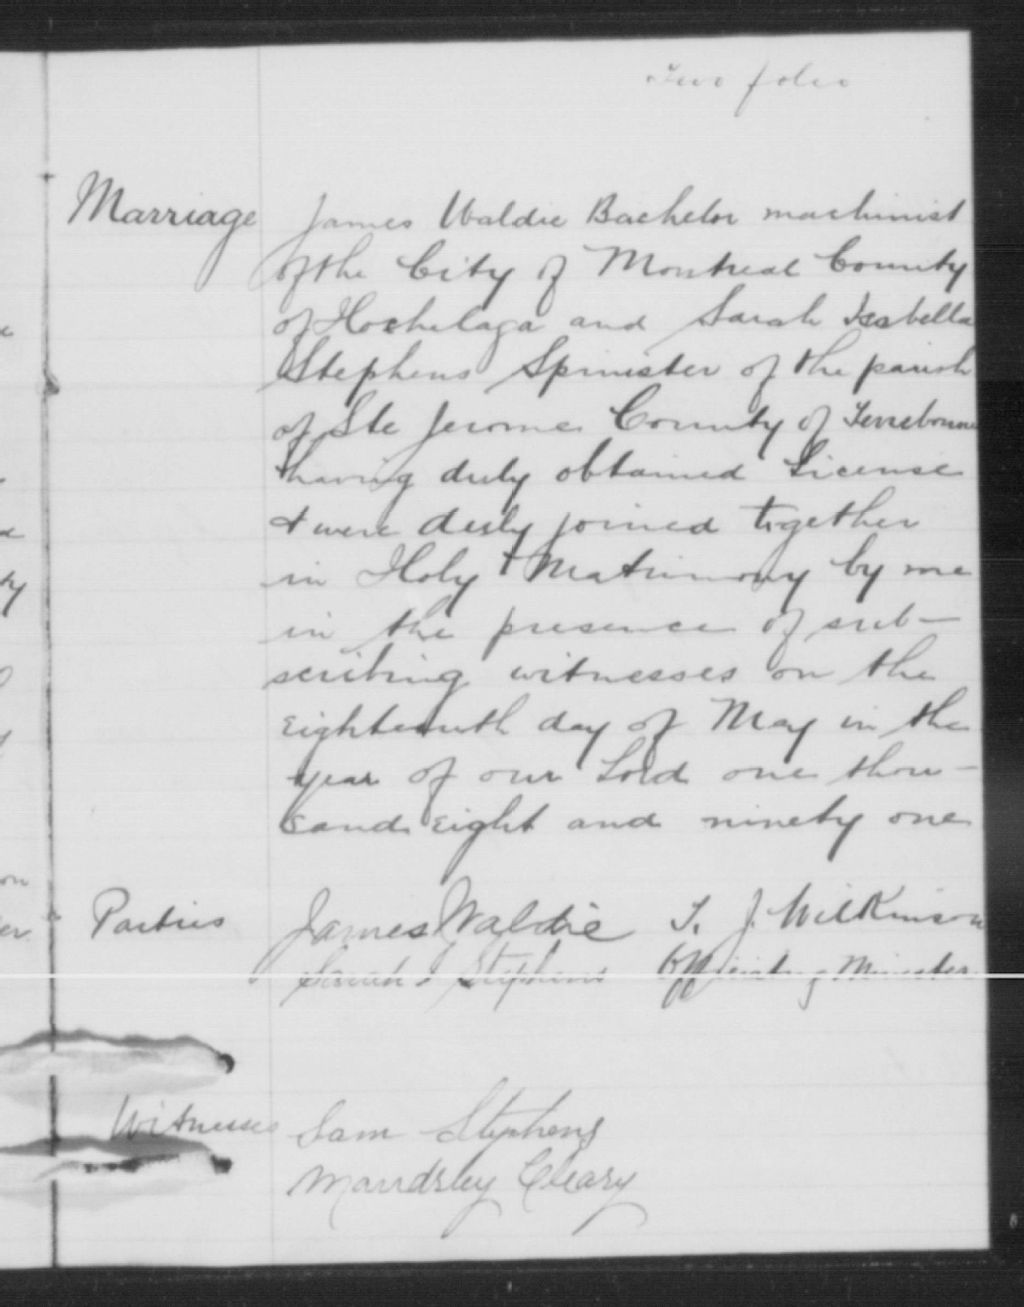 Two folio
Marriage James Waldie Bachelor machinist
of the City of Montreal County
of Hochelaga and Sarah Isabella
Stephens Spinister of the parish
of Ste Jerome County of Terrebonne
having duly obtained License
& were duly joined together
in Holy Matrimony by me
in the presence of sub-
scribing witnesses on the
Eighteenth day of May in the
year of our Lord one thou-
sand Eight and ninety one
Parties James Waldie T. J. Wilkinson
Sarah I Stephens Officiating Minister
Witnesses Sam Stephens
Maudsley Cleary